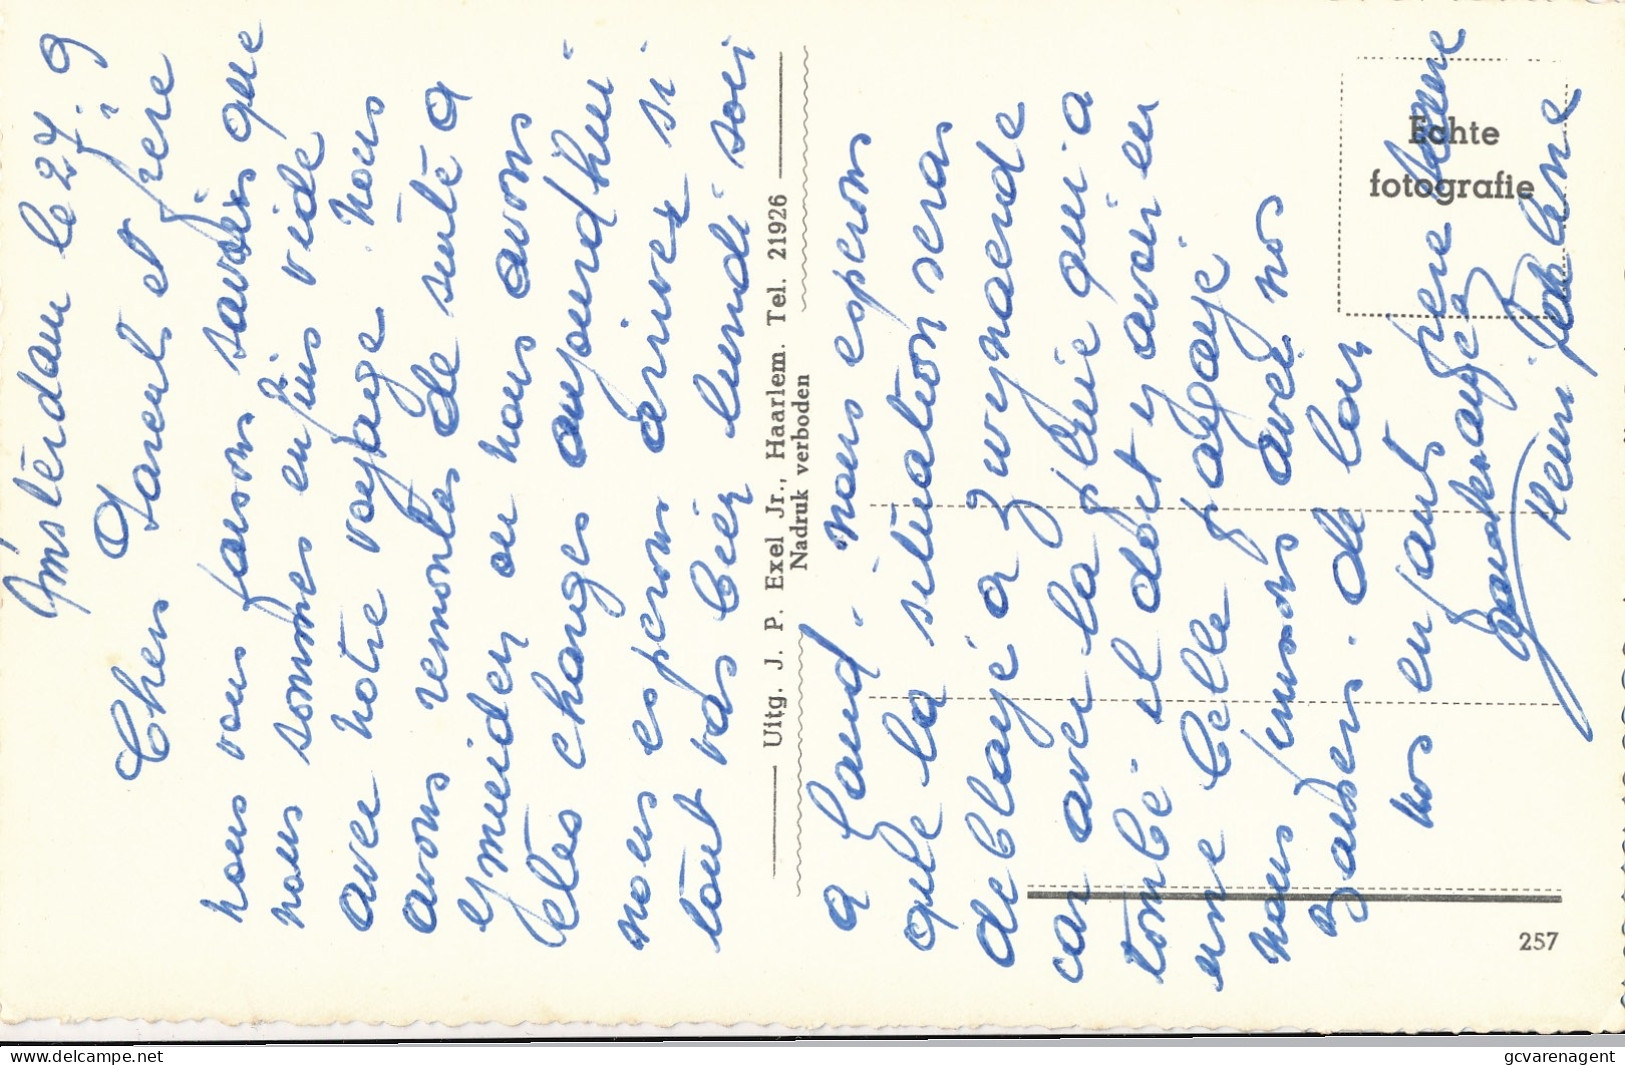 Amsterdam le 27.9
Chers Parent et frere
nous vous faisons savoir que
nous sommes enfins vide
avec notre voyage. Nous
avons remontés de suite a
Ymuiden ou nous avons
etes changes aujourd'hui
nous esperons arivez si
tout vas bien lundi soir
a Gand. nous esperons
que la situation seras
deblayé a Zwynaerde
car avec la pluie qui a
tombé il doit y avoir eu
une belle pagaye
nous finissons avec nos
Baisers. de loin
vos enfants
Henri
Echte
fotografie
Uitg. J. P. Exel Jr., Haarlem. Tel. 21926
Nadruk verboden
257
delcampe.net
gcvarenagent